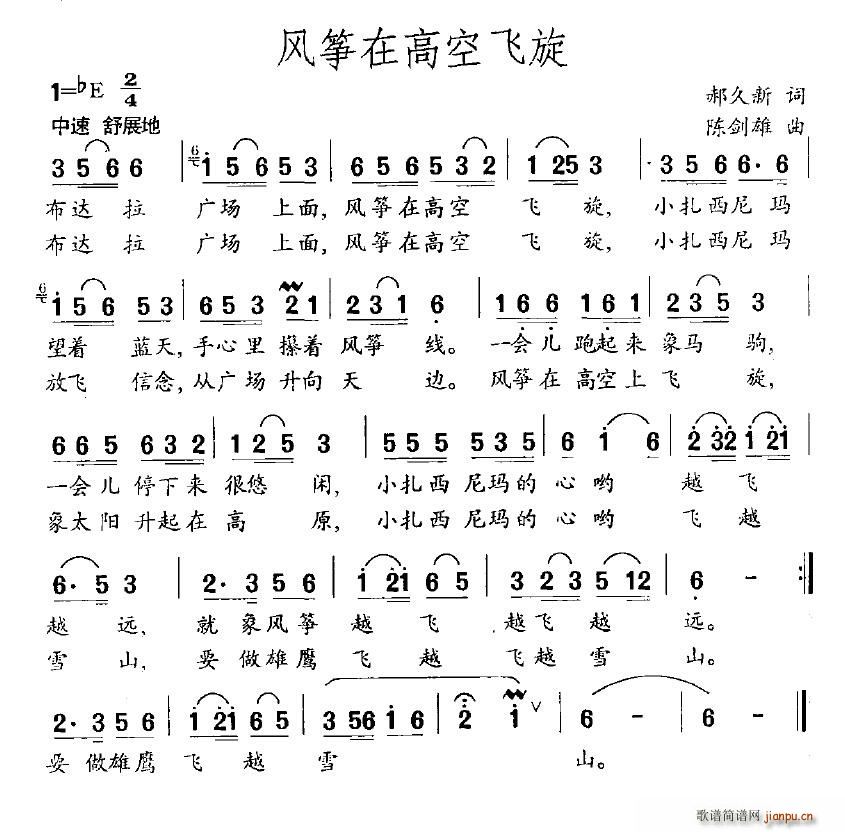 风筝在高空飞旋
1=♭E 2/4
郝久新 词
中速 舒展地
陈剑雄 曲
3 5 6 6 | 1 5 6 5 3 | 6 5 6 5 3 2 | 1 2 5 3 | 3 5 6 6· 6
布达 拉 广场 上面, 风筝在高空 飞 旋, 小扎西尼玛
布达 拉 广场 上面, 风筝在高空 飞 旋, 小扎西尼玛
1 5 6 5 3 | 6 5 3 2 1 | 2 3 1 6 | 1 6 6 1 6 1 | 2 3 5 3
望着 蓝天, 手心里 攥着 风筝 线。 一会儿 跑起来 象马 驹,
放飞 信念, 从广场 升向 天 边。 风筝在 高空上 飞 旋,
6 6 5 6 3 2 | 1 2 5 3 | 5 5 5 5 3 5 | 6 1 6 | 2 3 2 1 2 1
一会儿 停下来 很悠 闲, 小扎西 尼玛的 心 哟 越 飞
象太阳 升起在 高 原, 小扎西 尼玛的 心 哟 飞 越
6· 5 3 | 2· 3 5 6 | 1 2 1 6 5 | 3 2 3 5 1 2 | 6 - :||
越 远, 就 象风筝 越 飞 越飞 越 远。
雪 山, 要 做雄鹰 飞 越 飞越 雪 山。
2· 3 5 6 | 1 2 1 6 5 | 3 5 6 1 6 | 2 1 ∨ | 6 - | 6 - ||
要 做雄鹰 飞 越 雪 山。
歌谱简谱网 jianpu.cn